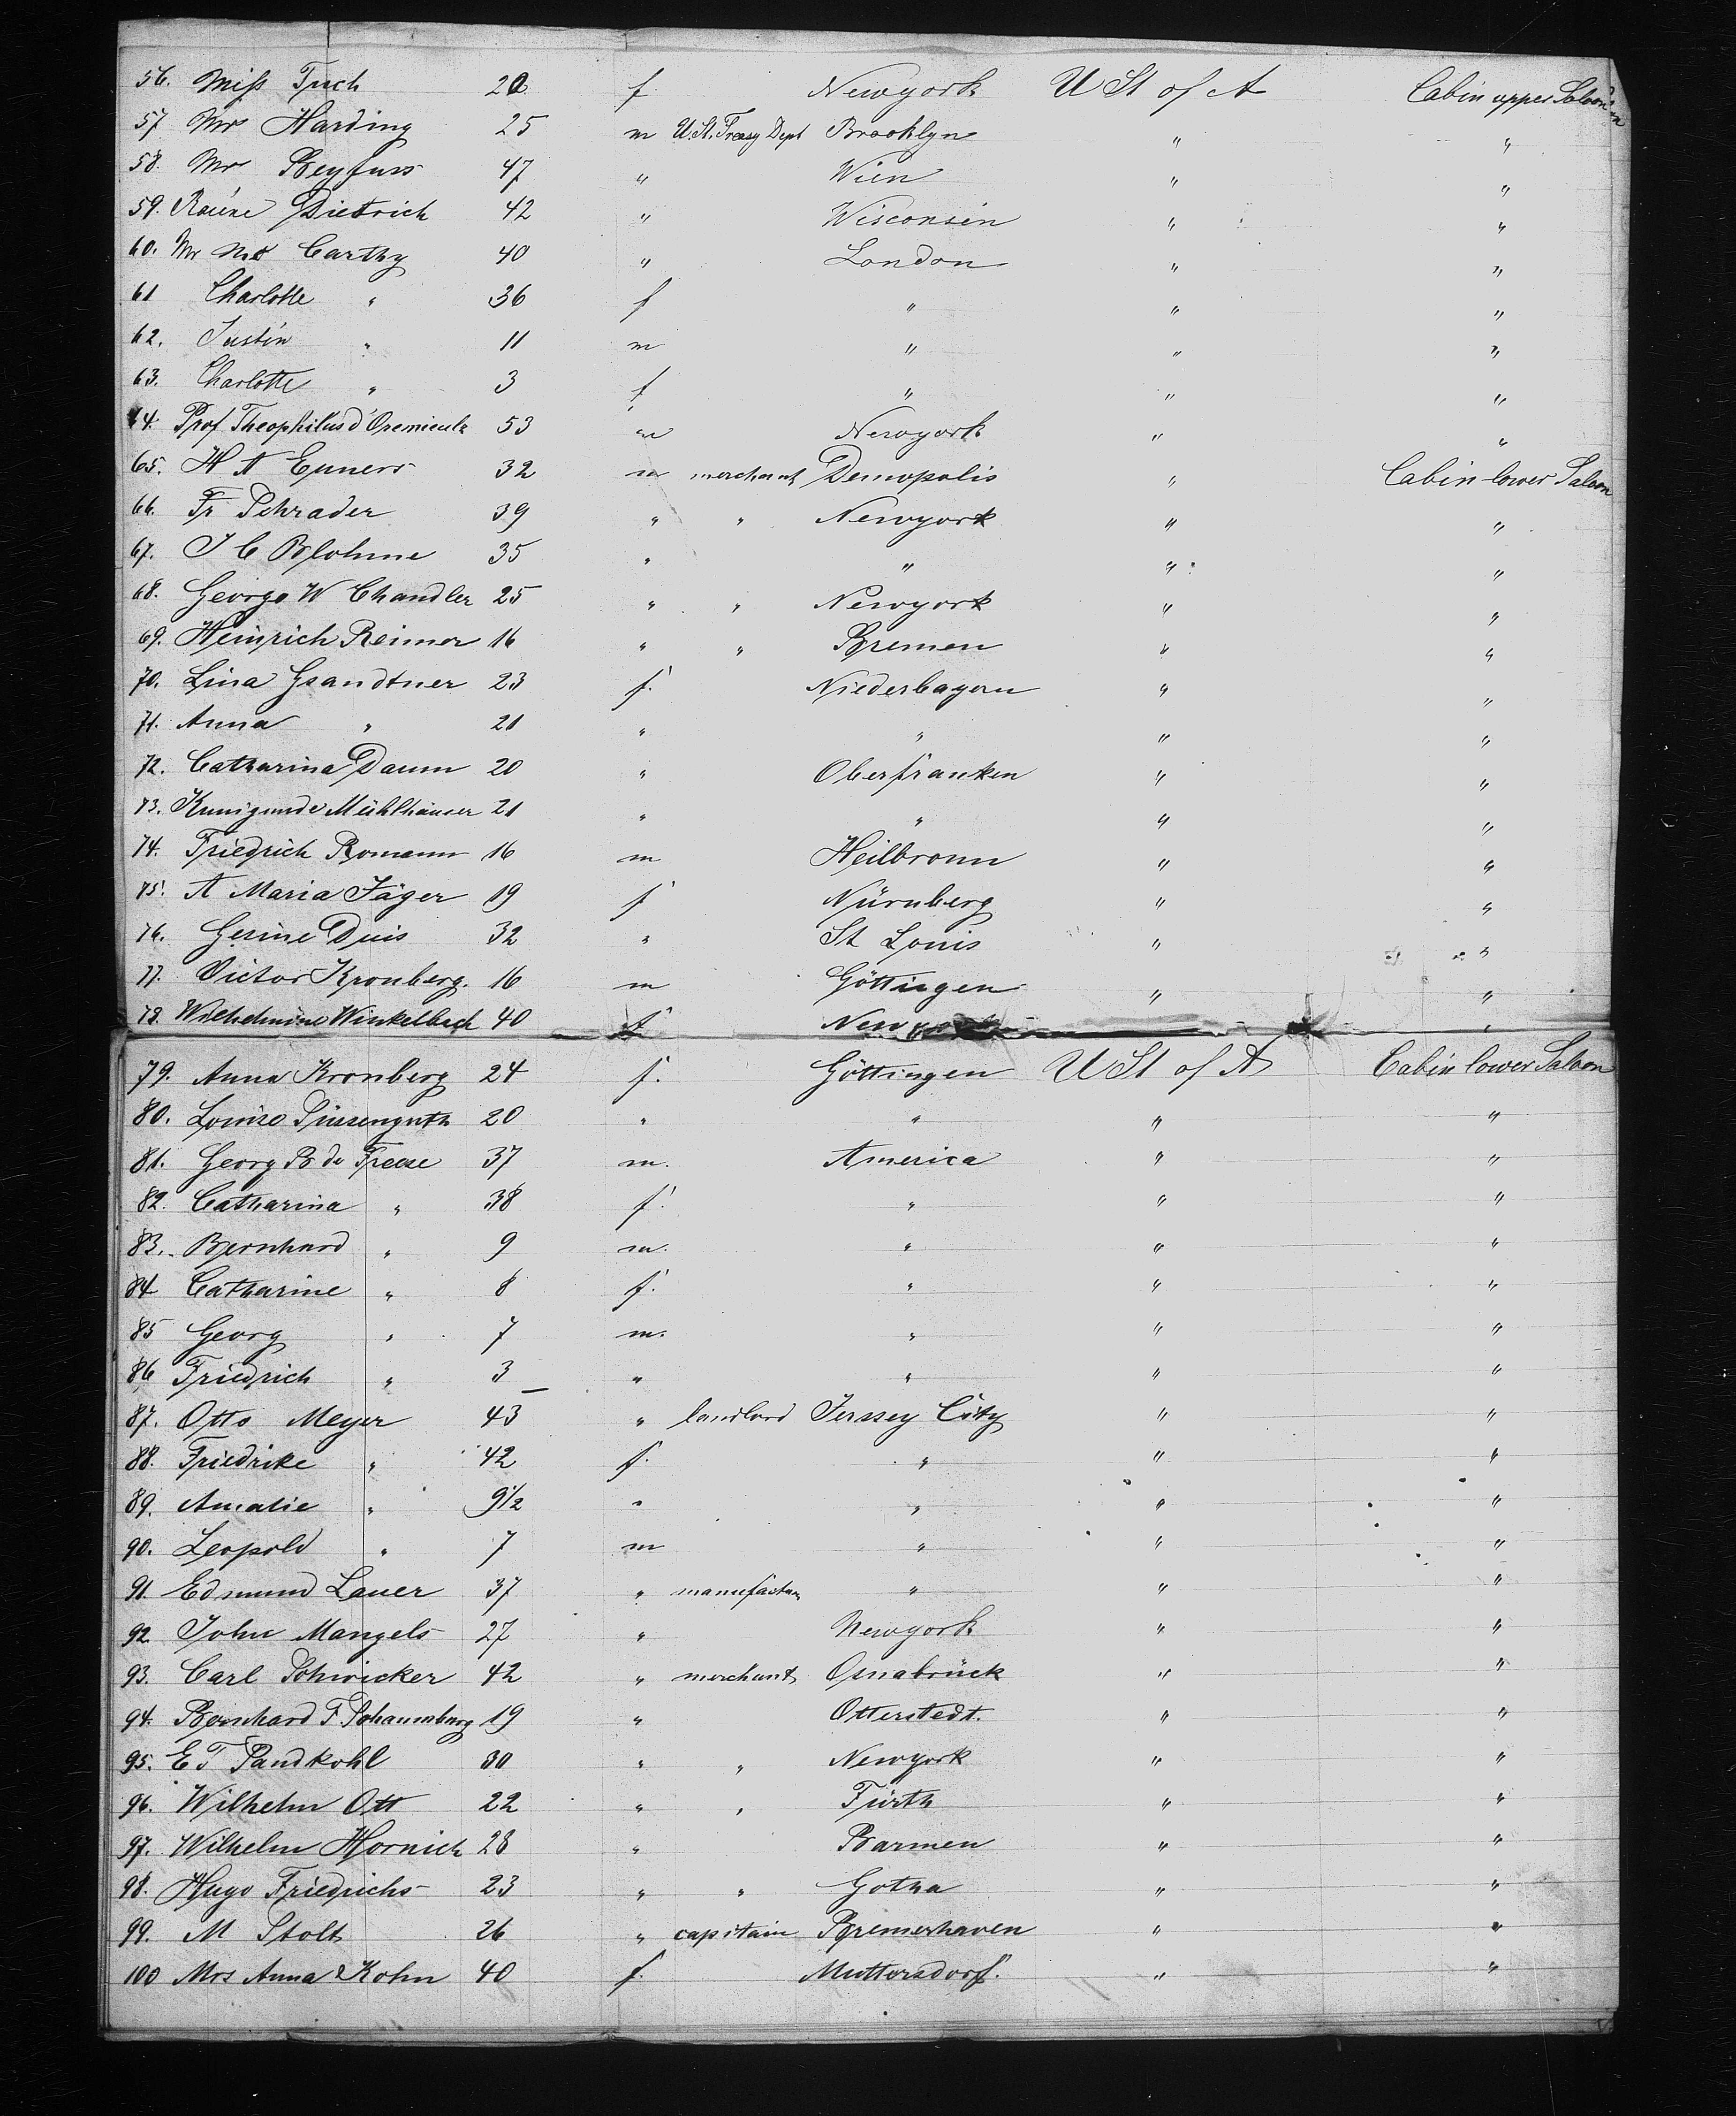 56. Miss Tuch 20 f. Newyork U St of A Cabin upper Saloon
57 Mr Harding 25 m U.St. Treasy Dept Brooklyn " "
58. Mr Reyfuss 47 " Wien " "
59. Dietrich 42 " Wisconsin " "
60. Mr Mc Carthy 40 " London " "
61 Charlotte " 36 f " " "
62. Justin " 11 m " " "
63. Charlotte " 3 f " " "
64. Prof Theophilus 53 m Newyork " "
65. H A Enners 32 m merchant Demopolis " Cabin lower Saloon
66. Fr Schrader 39 " " Newyork " "
67. J C Blohme 35 " " " "
68. George W Chandler 25 " " Newyork " "
69. Heinrich Reimer 16 " " Bremen " "
70. Lina Gsandtner 23 f. Niederbayern " "
71. Anna " 21 " " " "
72. Catharina Daum 20 " Oberfranken " "
73. Kunigunde Mühlhäuser 21 " " " "
74. Friedrich Romann 16 m Heilbronn " "
75. A Maria Jäger 19 f Nürnberg " "
76. Gesine Duis 32 " St Louis " "
77. Victor Kronberg. 16 m Göttingen " "
78. Wilhelmine Winkelbach 40 f Newyork "
79. Anna Kronberg 24 f. Göttingen U St of A Cabin lower Saloon
80. Louise 20 " " " "
81. Georg B de Freese 37 m. America " "
82. Catharina " 38 f. " " "
83. Bernhard " 9 m. " " "
84 Catharine " 8 f. " " "
85 Georg " 7 m. " " "
86 Friedrich " 3 " " " "
87. Otto Meyer 43 " landlord Jerssey City " "
88. Friedrike " 42 f. " " "
89. Amalie " 9 1/2 " " " "
90. Leopold " 7 m " " "
91. Edmund Lauer 37 " manufactur " " "
92. John Mangels 27 " Newyork " "
93. Carl Schwicker 42 " merchant Osnabrück " "
94. Bernhard F Schaumburg 19 " Otterstedt. " "
95. E T Sandkohl 30 " " Newyork " "
96. Wilhelm Ott 22 " " Fürth " "
97. Wilhelm Hornich 28 " Barmen " "
98. Hugo Friedrichs 23 " " Gotha " "
99. M Stolt 26 " capitain Bremerhaven " "
100 Mrs Anna Kohn 40 f. Muttersdorf. " "